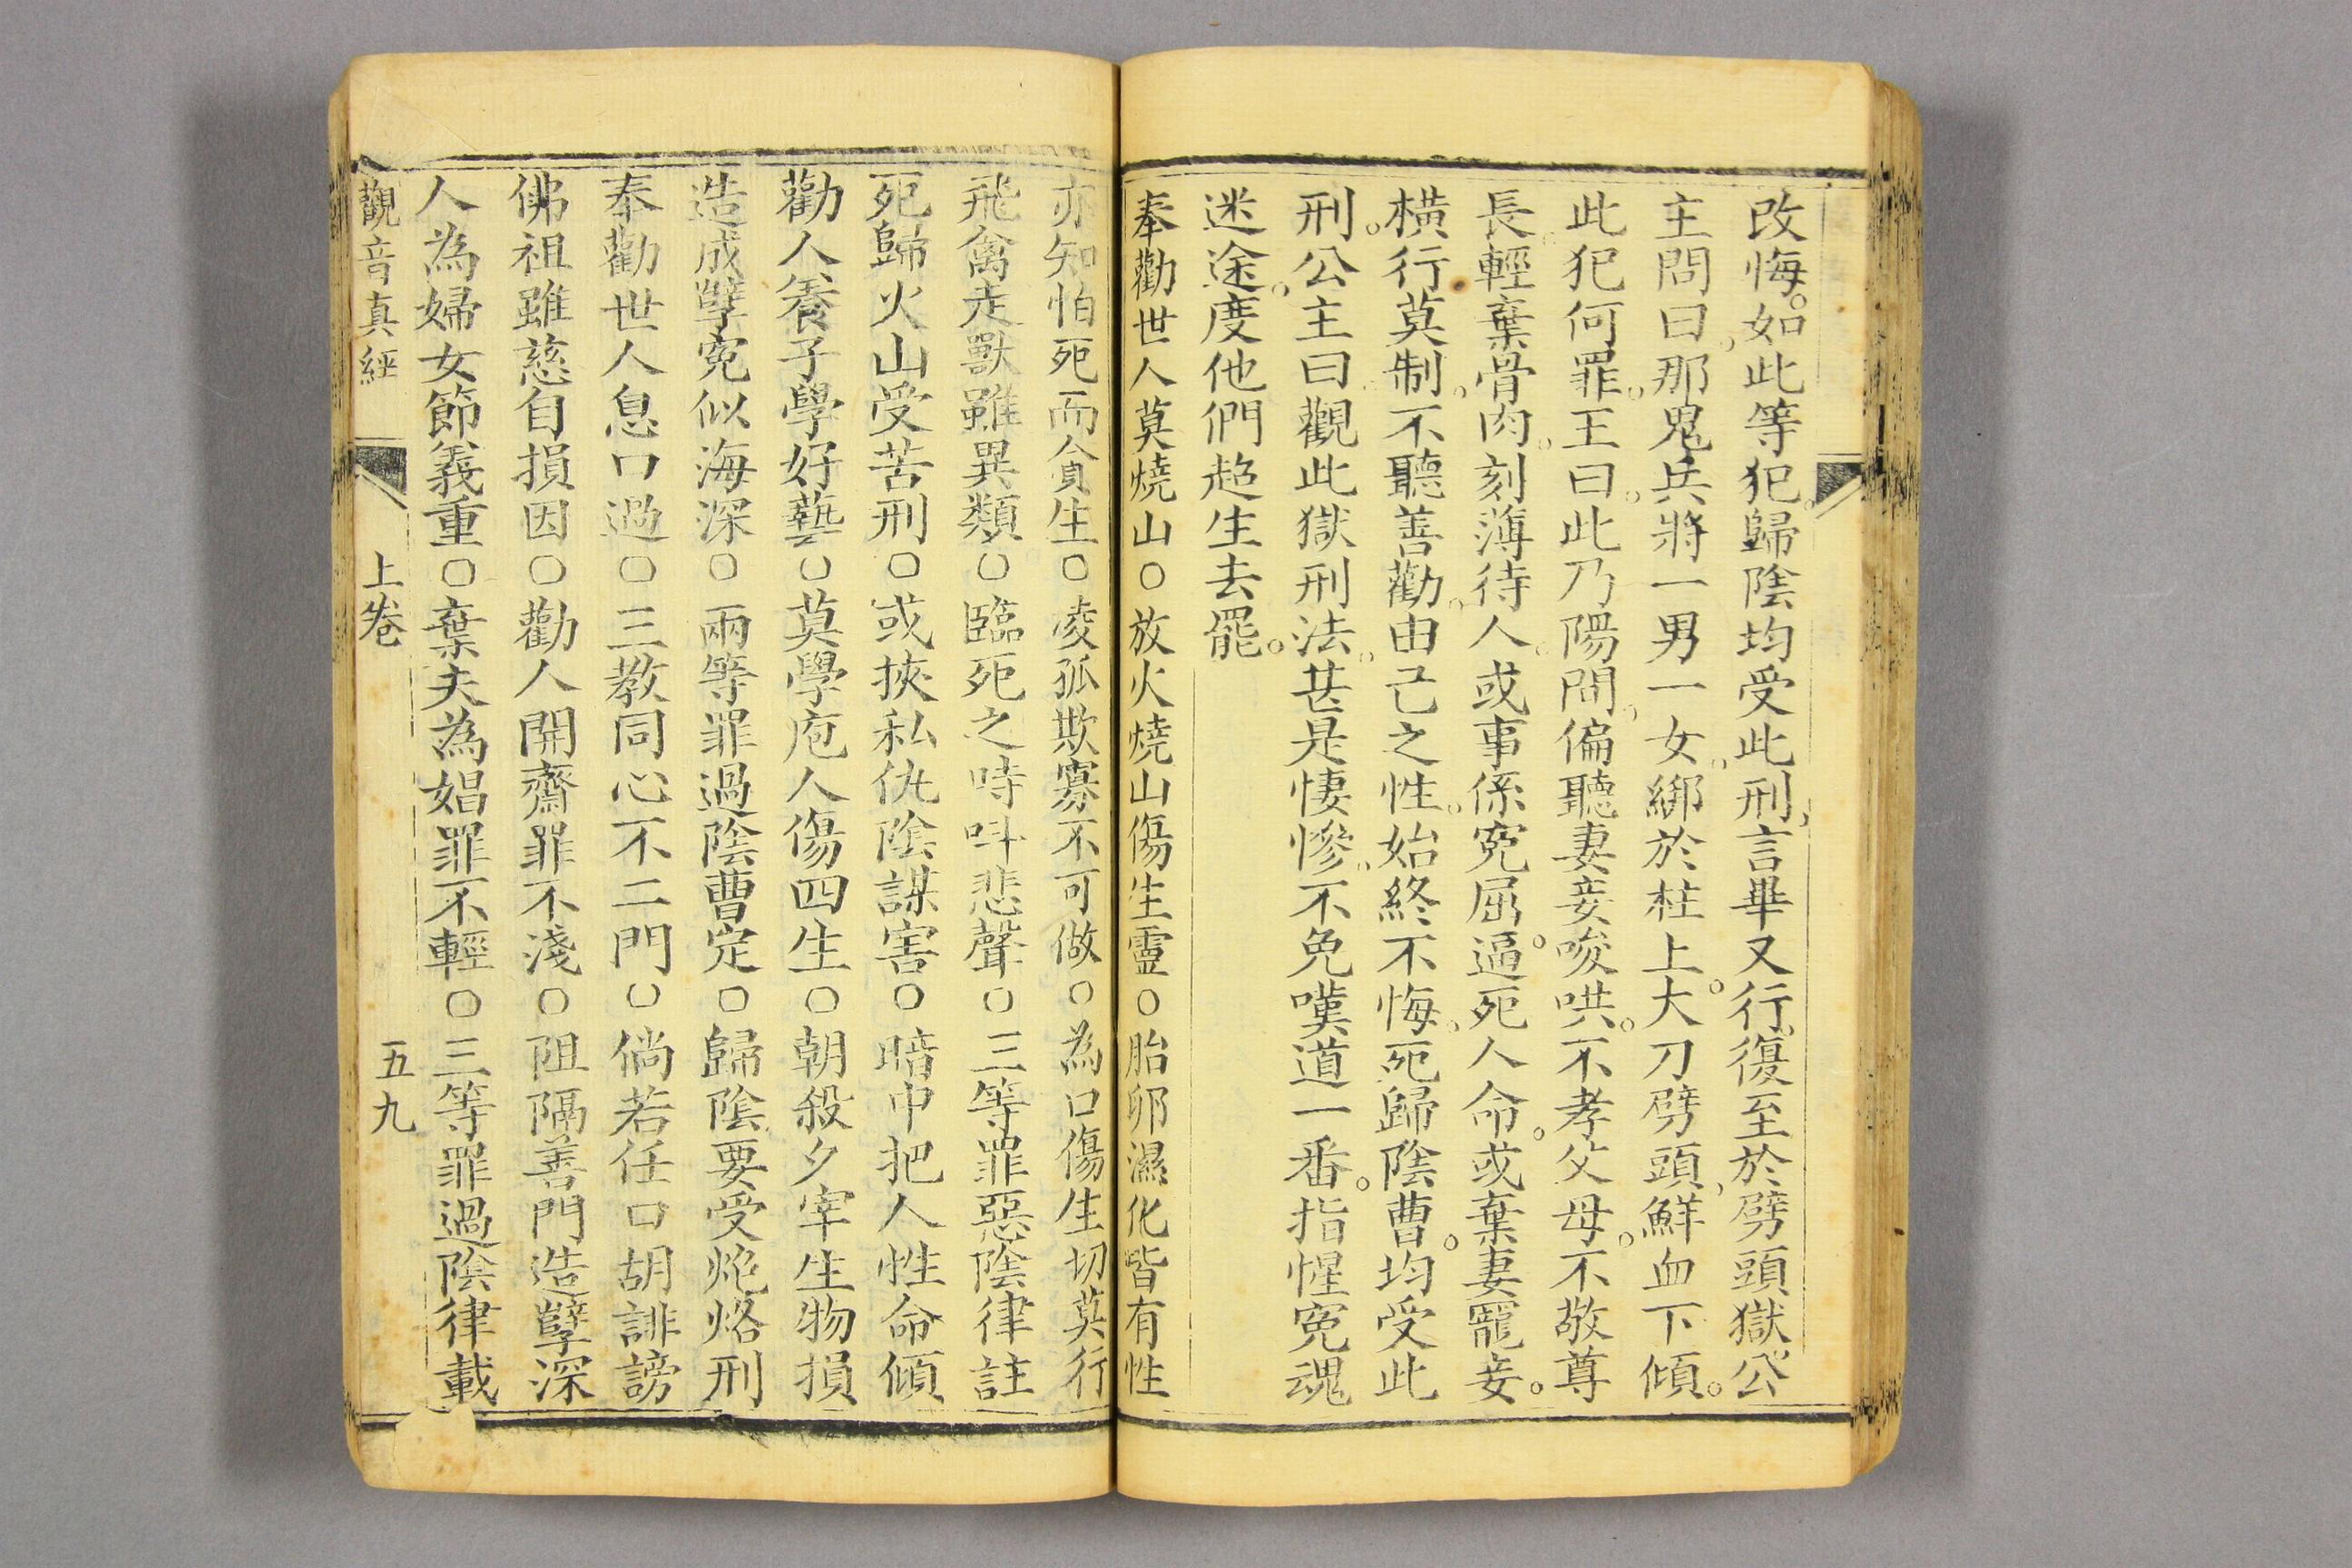 改悔。如此等犯。歸陰均受此刑、言畢又行。復至於劈頭獄。公
主問曰、那鬼兵將一男一女、綁於柱上。大刀劈頭、鮮血下傾。
此犯何罪。王曰。此乃陽間、偏聽妻妾唆哄。不孝父母。不敬尊
長。輕棄骨肉。刻薄待人。或事係寃屈。逼死人命。或棄妻寵妾。
橫行莫制。不聽善勸。由己之性。始終不悔。死歸陰曹。均受此
刑。公主曰。觀此獄刑法。甚是悽慘。不免嘆道一番。指惺寃魂
迷途。度他們超生去罷。
奉勸世人莫燒山○放火燒山傷生靈○胎卵濕化皆有性
亦知怕死而貪生○凌孤欺寡不可做○為口傷生切莫行
飛禽走獸雖異類○臨死之時呌悲聲○三等罪惡陰律註
死歸火山受苦刑○或挾私仇陰謀害○暗中把人性命傾
勸人養子學好藝○莫學庖人傷四生○朝殺夕宰生物損
造成孼寃似海深○兩等罪過陰曹定○歸陰要受炮烙刑
奉勸世人息口過○三教同心不二門○倘若任口胡誹謗
佛祖雖慈自損因○勸人開齋罪不淺○阻隔善門造孼深
人為婦女節義重○棄夫為娼罪不輕○三等罪過陰律載
觀音真經 上卷 五九